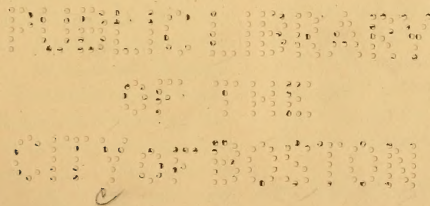 PUBLIC LIBRARY
OF THE
CITY OF BOSTON